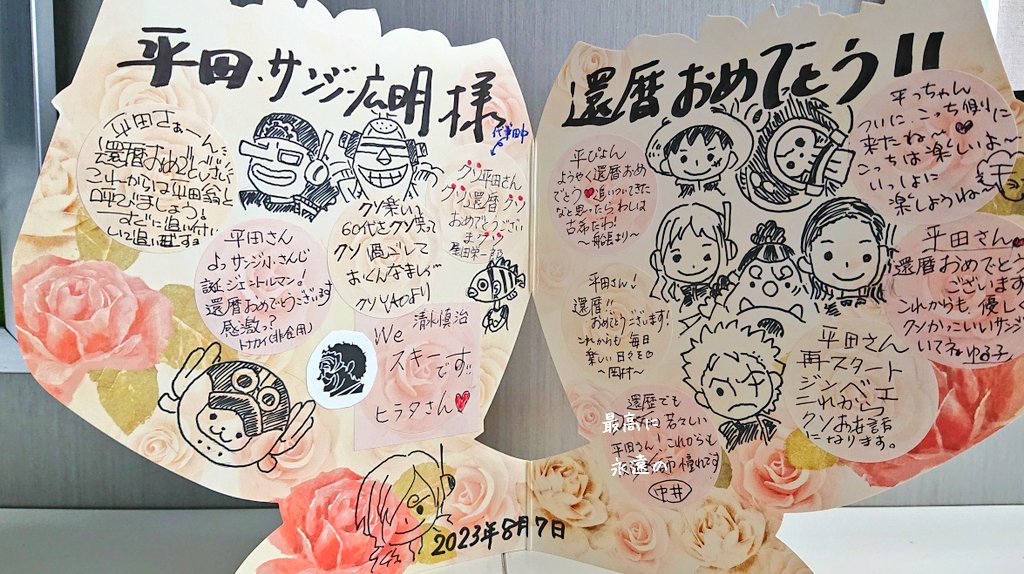 平田サンジ広明様
平田さぁーん、
還暦おめでとうござい
呼びましょう!
平田さん
よっサンジ
ジェントルマン!
還暦おめでとうございます
感激っ?
クソ楽しい
60代をクソ笑って
クソ過ごして
おくんなまし〜
クソYAOより
クソ平田さん
クソ還暦クソ
おめでとうござい
ますクソ
We
清水慎治
スキーです!!
ヒラタさん♥
2023年8月7日
還暦おめでとう!!
平ぴょん
ようやく還暦おめ
でとう♥追いついてきた
なと思ったらわしは
古希だわ!
〜船長より〜
平っちゃん
ついに、こっち側に
来たね〜♥
こっちは楽しいよ〜
いっしょに
楽しもうね〜
平田さん!
還暦!!
おめでとうございます!
これからも毎日
楽しい日々を♡
〜岡村〜
平田さん♥
還暦おめでとう
ございます
これからも、優しく
クソかっこいいサンジ
いてね ゆう子
平田さん
再スタート
ジンベエ
これからも
クソお世話
になります。
還暦でも
最高に若々しい
平田さん!これからも
永遠の憧れです
中井